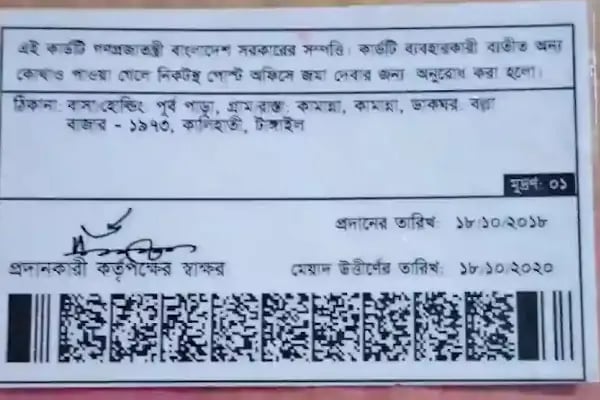 এই কার্ডটি গণপ্রজাতন্ত্রী বাংলাদেশ সরকারের সম্পত্তি। কার্ডটি ব্যবহারকারী ব্যতীত অন্য
কোথাও পাওয়া গেলে নিকটস্থ পোস্ট অফিসে জমা দেবার জন্য অনুরোধ করা হলো।
ঠিকানা: বাসা/হোল্ডিং: পূর্ব পাড়া, গ্রাম/রাস্তা: কামান্না, কামান্না, ডাকঘর: বল্লা
বাজার - ১৯৭৩, কালিহাতী, টাঙ্গাইল
মুদ্রণ: ০১
প্রদানের তারিখ: ১৮/১০/২০১৮
প্রদানকারী কর্তৃপক্ষের স্বাক্ষর
মেয়াদ উত্তীর্ণের তারিখ: ১৮/১০/২০২০